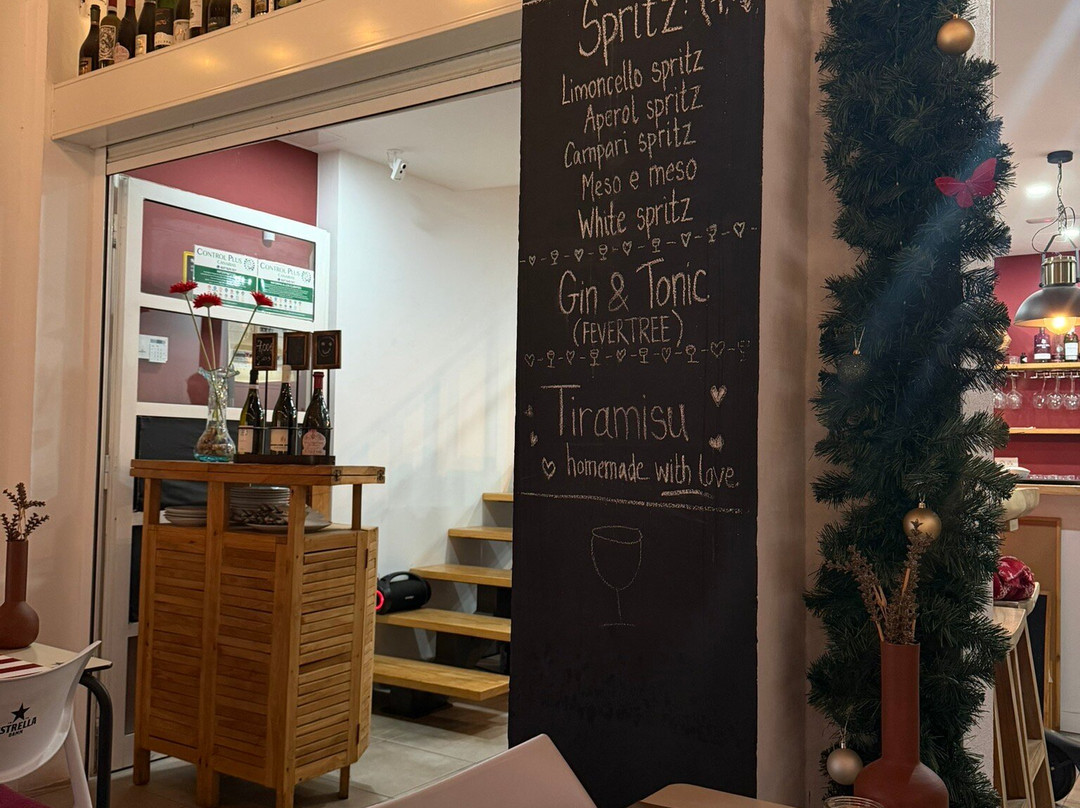 Spritz!
Limoncello spritz
Aperol spritz
Campari spritz
Meso e meso
White spritz
Gin & Tonic
(FEVERTREE)
Tiramisu
homemade with love
CONTROL PLUS
CONTROL PLUS
ESTRELLA
DAMM